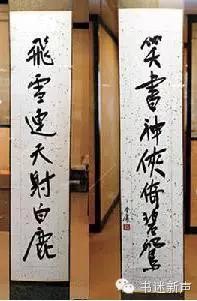 飛雪連天射白鹿
笑書神俠倚碧鴛
书迷新声